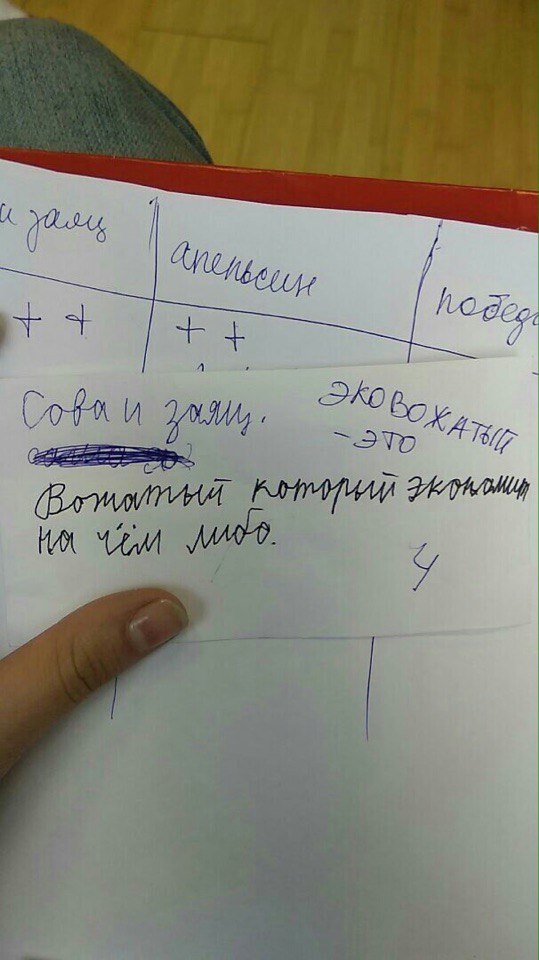 и заяц
апельсин
+ +
+ +
Сова и заяц.
ЭКОВОЖАТЫЙ
- ЭТО
Вожатый который экономит
на чём либо.
Ч